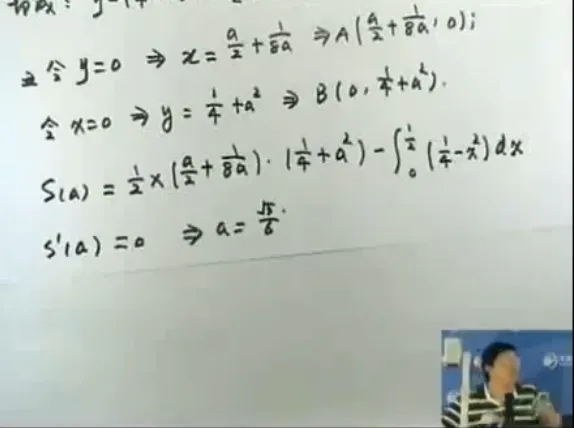 y=0 ⇒ x = a/2 + 1/8a ⇒ A(a/2 + 1/8a, 0);
令 x=0 ⇒ y = 1/4 + a² ⇒ B(0, 1/4 + a²).
S(a) = 1/2 × (a/2 + 1/8a) · (1/4 + a²) − ∫₀^{1/2} (1/4 − x²) dx
S'(a) = 0 ⇒ a = √3/6.